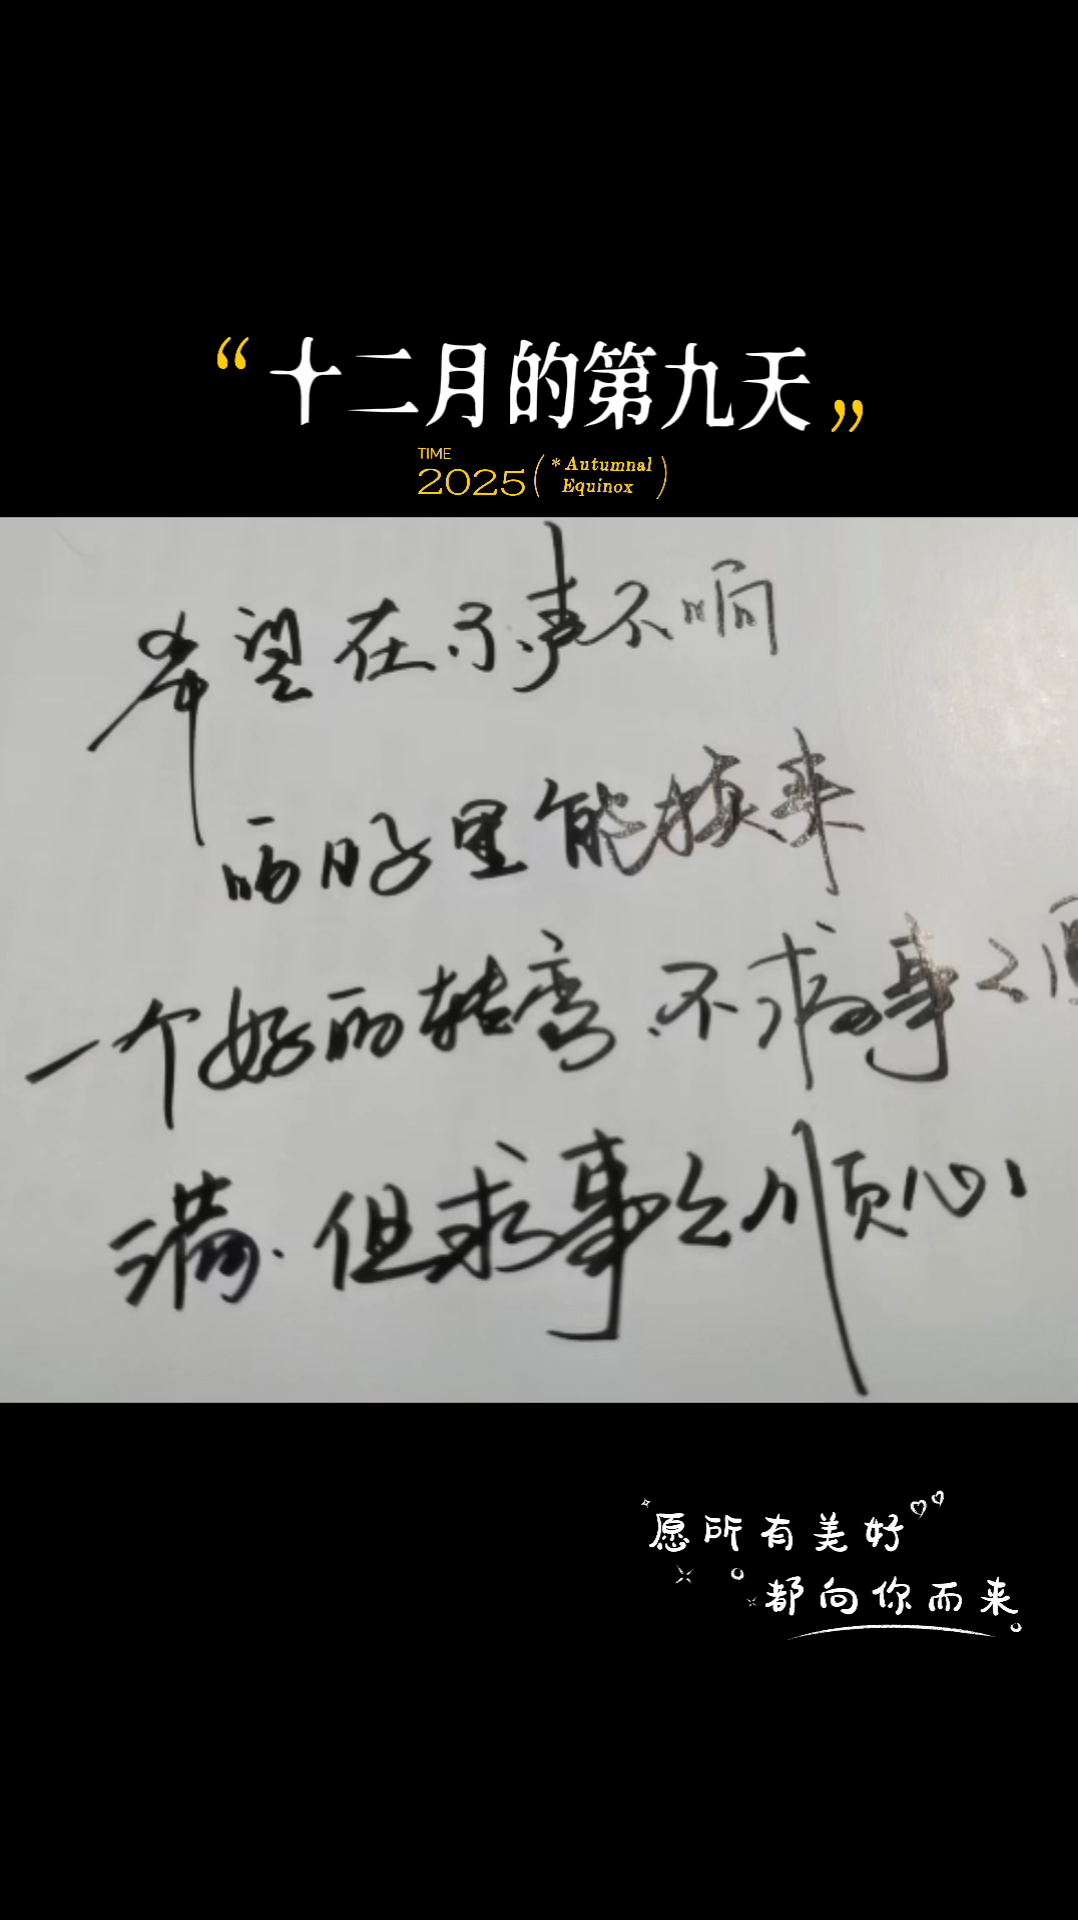 “十二月的第九天”
TIME
2025 (*Autumnal
Equinox)
希望在不声不响
的日子里能换来
一个好的转弯.不求事事圆
满.但求事事顺心
愿所有美好
都向你而来